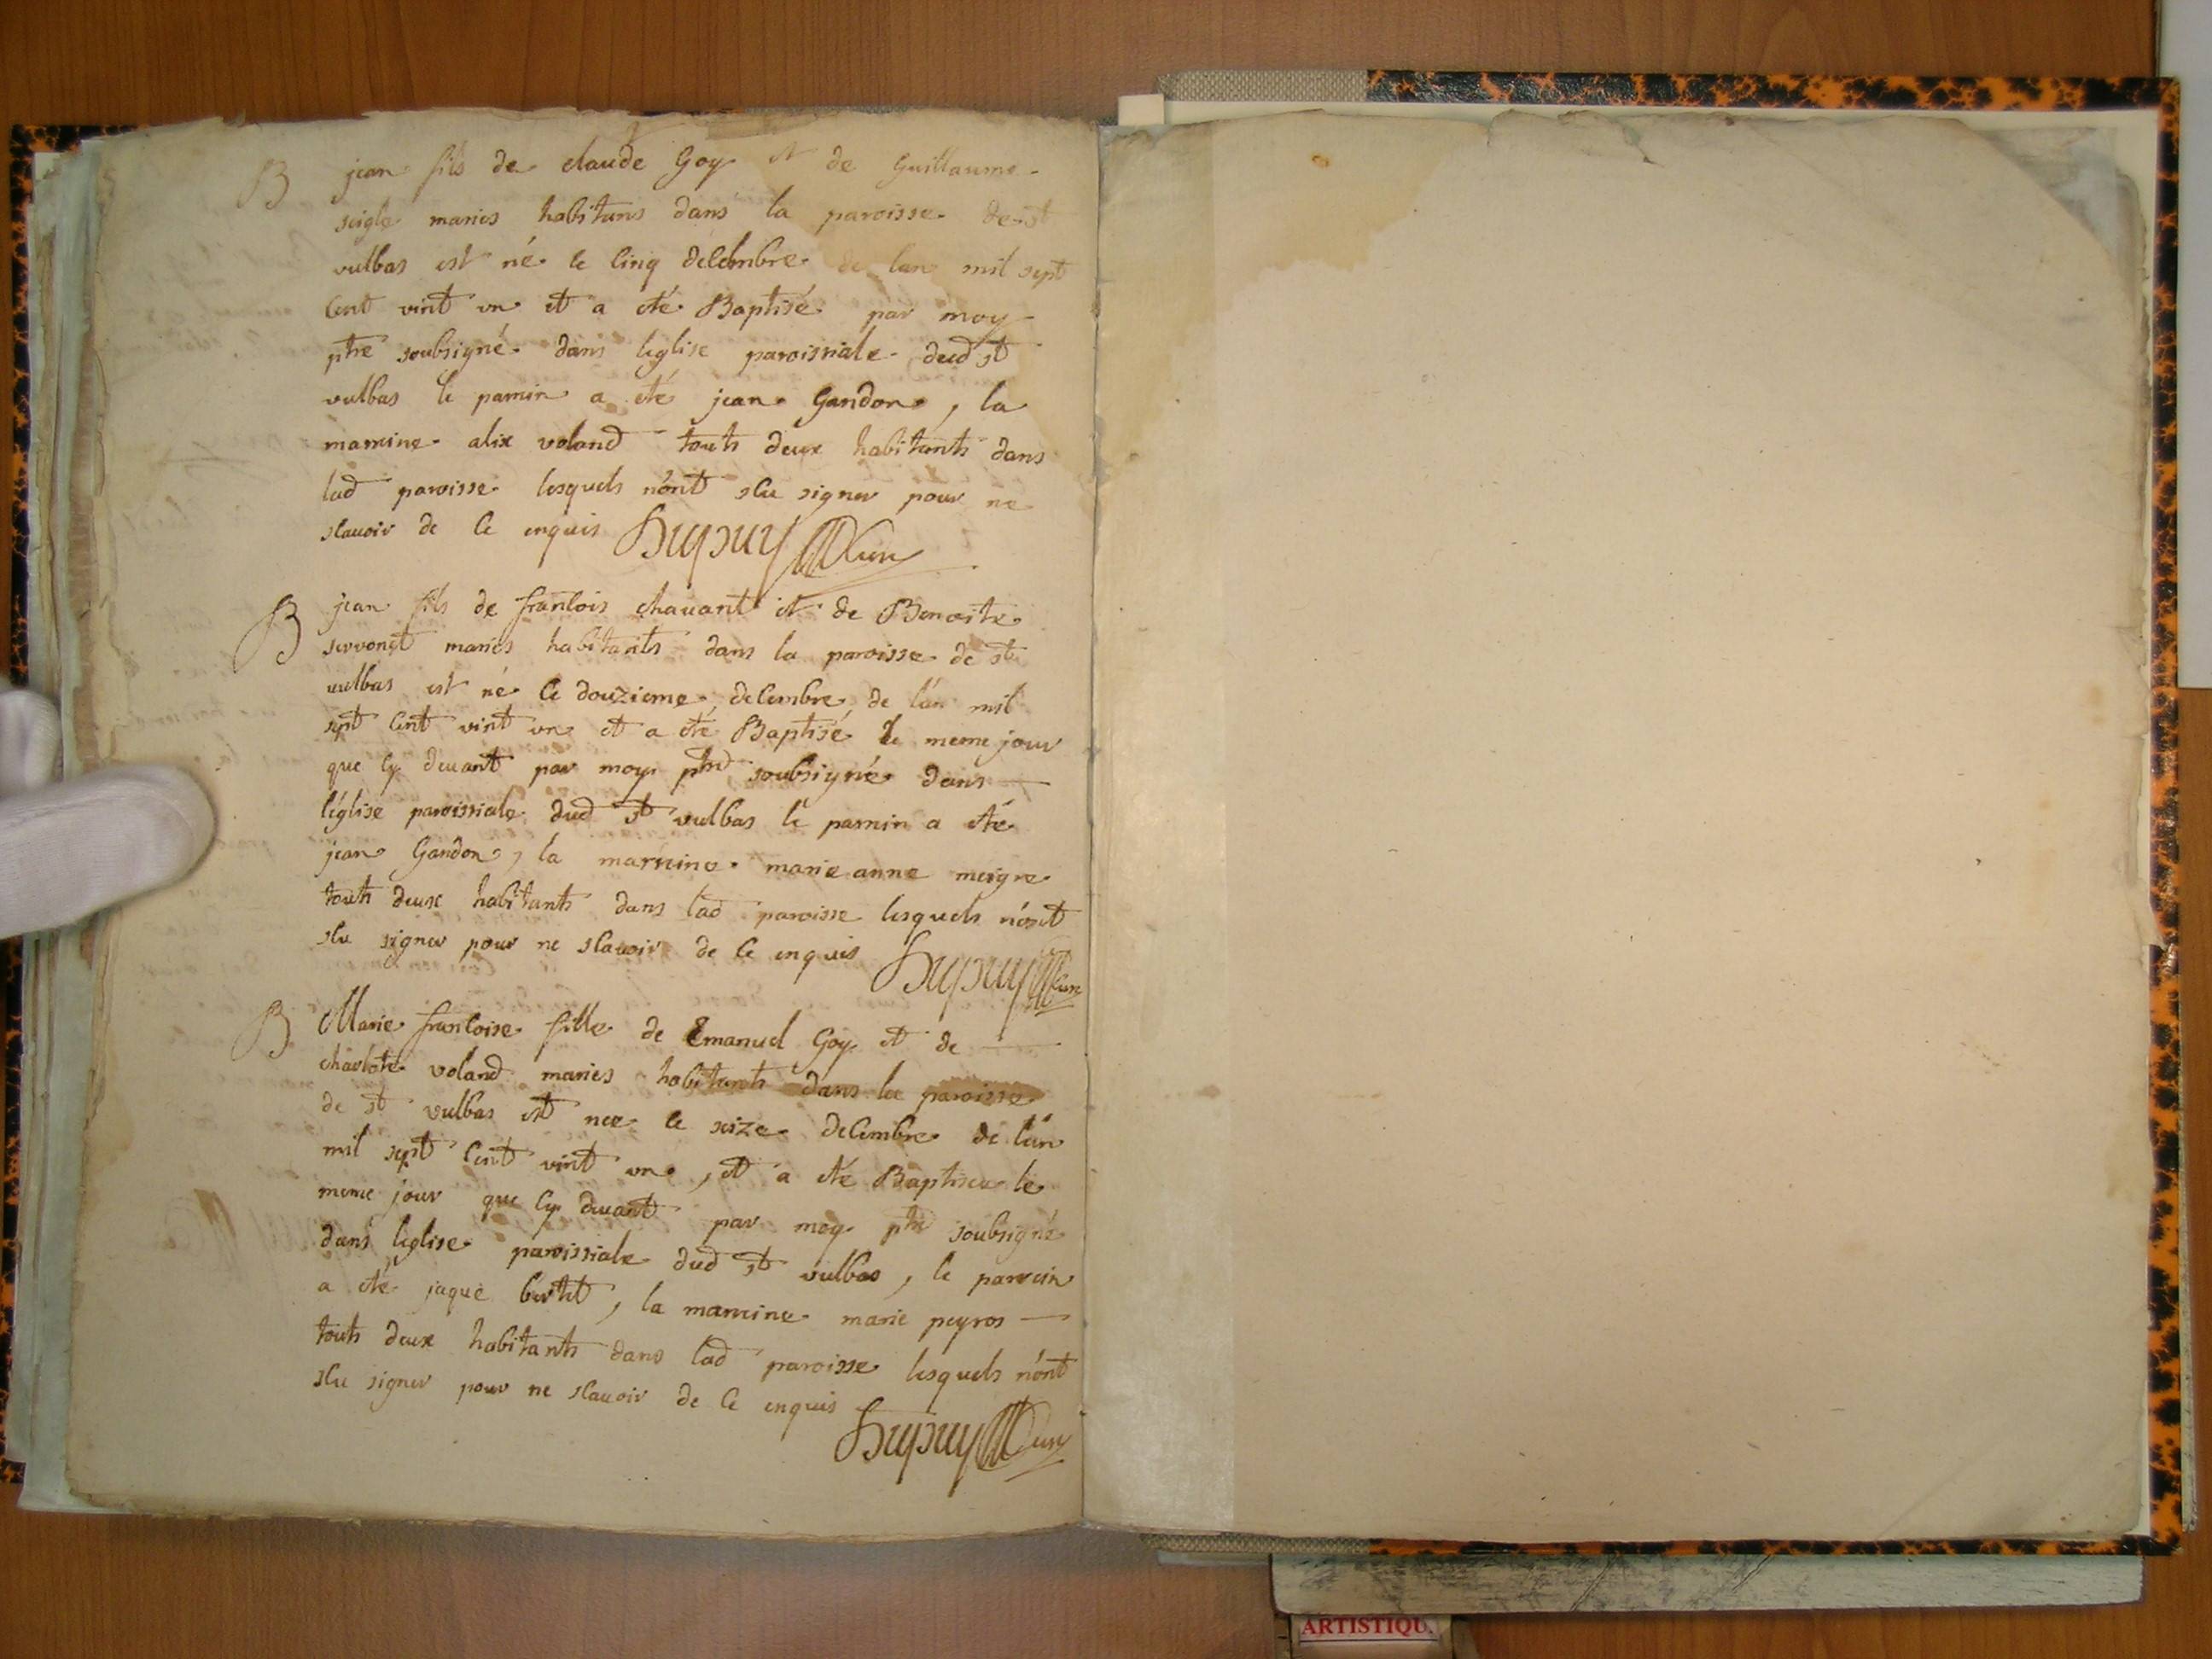 B jean fils de claude Goy et de Guillaume
seigle maries habitans dans la paroisse de st
vulbas est né le cinq decembre de lan mil sept
cent vint un et a eté Baptisé par moy
ptre soubsigné dans leglise paroissiale dud st
vulbas le parrin a eté jean Gandon, la
marrine alix voland touts deux habitants dans
lad paroisse lesquels n'ont sceu signer pour ne
scavoir de ce enquis Dupuy Cure
B jean fils de francois chavant et de Benoite
servonet mariés habitants dans la paroisse de st
vulbas est né le douzieme decembre de l'an mil
sept cent vint un et a eté Baptisé le meme jour
que cy devant par moy ptre soubsigné dans
l'église paroissiale dud st vulbas le parrin a eté
jean Gandon, la marreine marie anne meigre
touts deux habitants dans lad paroisse lesquels n'ont
sceu signer pour ne scavoir de ce enquis Dupuy Cure
B Marie francoise fille de Emanuel Goy et de
charlote voland maries habitants dans la paroisse
de st vulbas est nee le seize decembre de l'an
mil sept cent vint un, et a eté Baptisee le
meme jour que cy devant par moy ptre soubsigné
dans leglise paroissiale dud st vulbas, le parrein
a eté jaque bertet, la marreine marie peyros
touts deux habitants dans lad paroisse lesquels n'ont
sceu signer pour ne scavoir de ce enquis
Dupuy Cure
ARTISTIQU